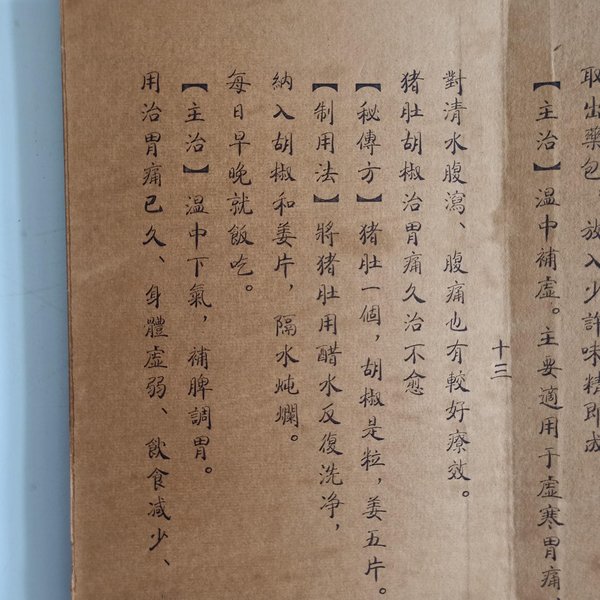 取出藥包　放入少許味精即成
【主治】溫中補虛。主要適用于虛寒胃痛、
十三
對清水腹瀉、腹痛也有較好療效。
猪肚胡椒治胃痛久治不愈
【秘傳方】猪肚一個，胡椒是粒，姜五片。
【制用法】將猪肚用醋水反復洗净，
納入胡椒和姜片，隔水炖爛。
每日早晚就飯吃。
【主治】溫中下氣，補脾調胃。
用治胃痛已久、身體虛弱、飲食减少、